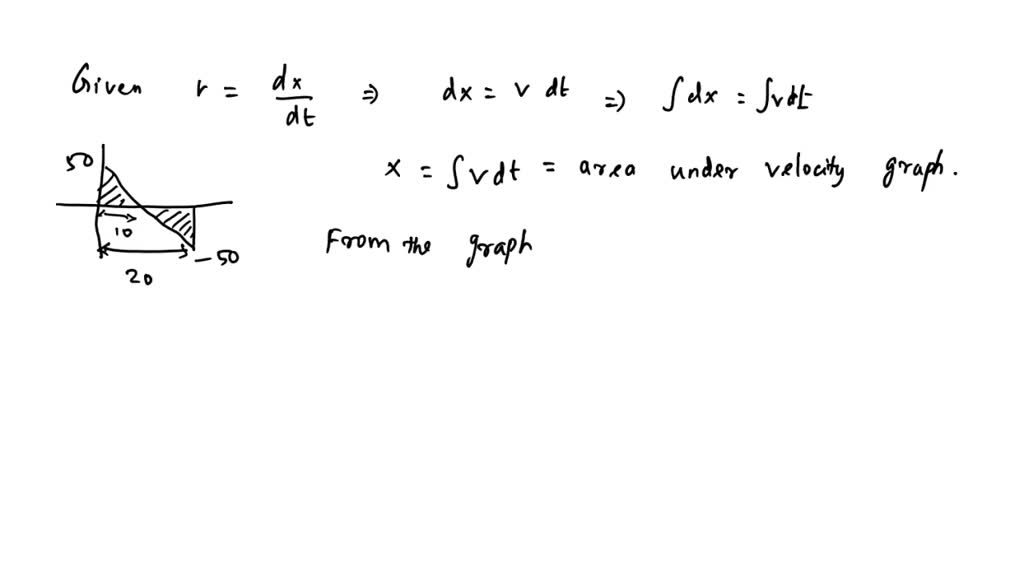 Given r = dx/dt ⇒ dx = v dt ⇒ ∫dx = ∫vdt
x = ∫vdt = area under velocity graph.
50
10
20
-50
From the graph